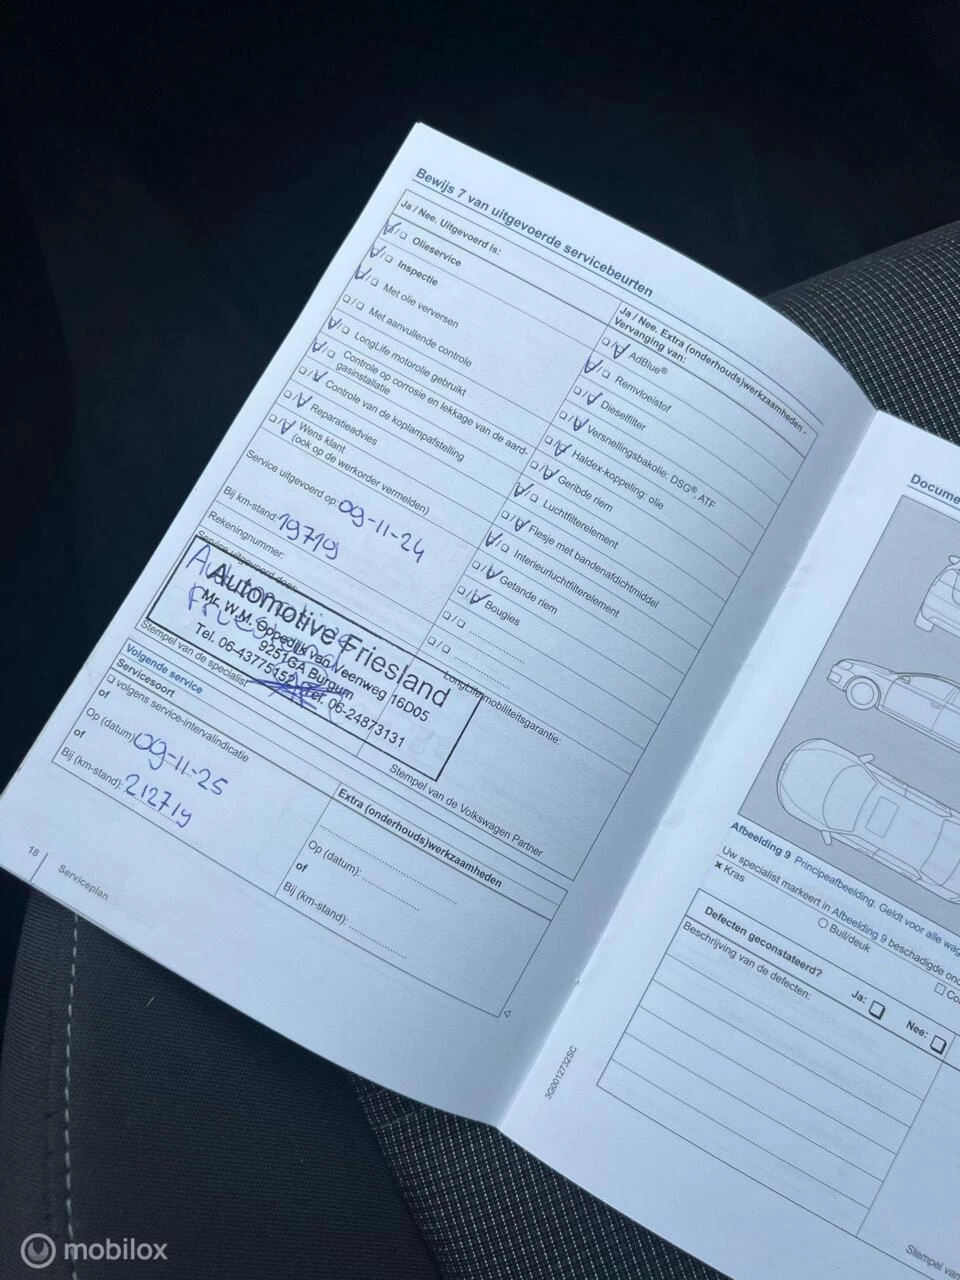 Bewijs 7 van uitgevoerde servicebeurten
Ja / Nee. Uitgevoerd is:
Olieservice
Inspectie
Met olie verversen
Met aanvullende controle
LongLife motorolie gebruikt
Controle op corrosie en lekkage van de aard-
gasinstallatie
Controle van de koplampafstelling
Reparatieadvies
Wens klant
(ook op de werkorder vermelden)
Service uitgevoerd op: 09-11-24
Bij km-stand: 197.19
Rekeningnummer:
Service uitgevoerd door:
Automotive Friesland
Mr. W.M. Oppedijk van Veenweg 16D05
9251GA Burgum
Tel. 06-43775152 / Tel. 06-24873131
Stempel van de specialist
Ja / Nee. Extra (onderhouds)werkzaamheden -
Vervanging van:
AdBlue®
Remvloeistof
Dieselfilter
Versnellingsbakolie: DSG®, ATF
Haldex-koppeling: olie
Geribde riem
Luchtfilterelement
Flesje met bandenafdichtmiddel
Interieurluchtfilterelement
Getande riem
Bougies
LongLife mobiliteitsgarantie:
Stempel van de Volkswagen Partner
Volgende service
Servicesoort
volgens service-intervalindicatie
of
Op (datum): 09-11-25
of
Bij (km-stand): 212719
Extra (onderhouds)werkzaamheden
Op (datum):
of
Bij (km-stand):
18
Serviceplan
3G0012732SC
Docume
Afbeelding 9 Principeafbeelding. Geldt voor alle wag
Uw specialist markeert in Afbeelding 9 beschadigde ond
Kras
Buil/deuk
Defecten geconstateerd?
Ja:
Nee:
Beschrijving van de defecten:
Stempel van
mobilox